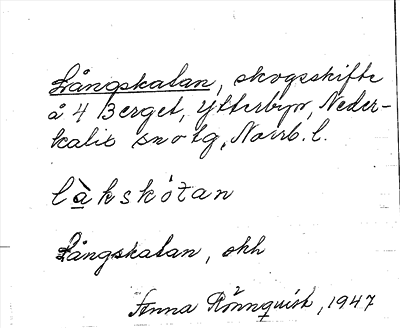 Långskatan, skogsskifte
å 4 Berget, Ytterbyn, Neder-
kalix sn o tg, Norrb. l.
làkskòtan
Långskatan, okh
Anna Rönnquist, 1947